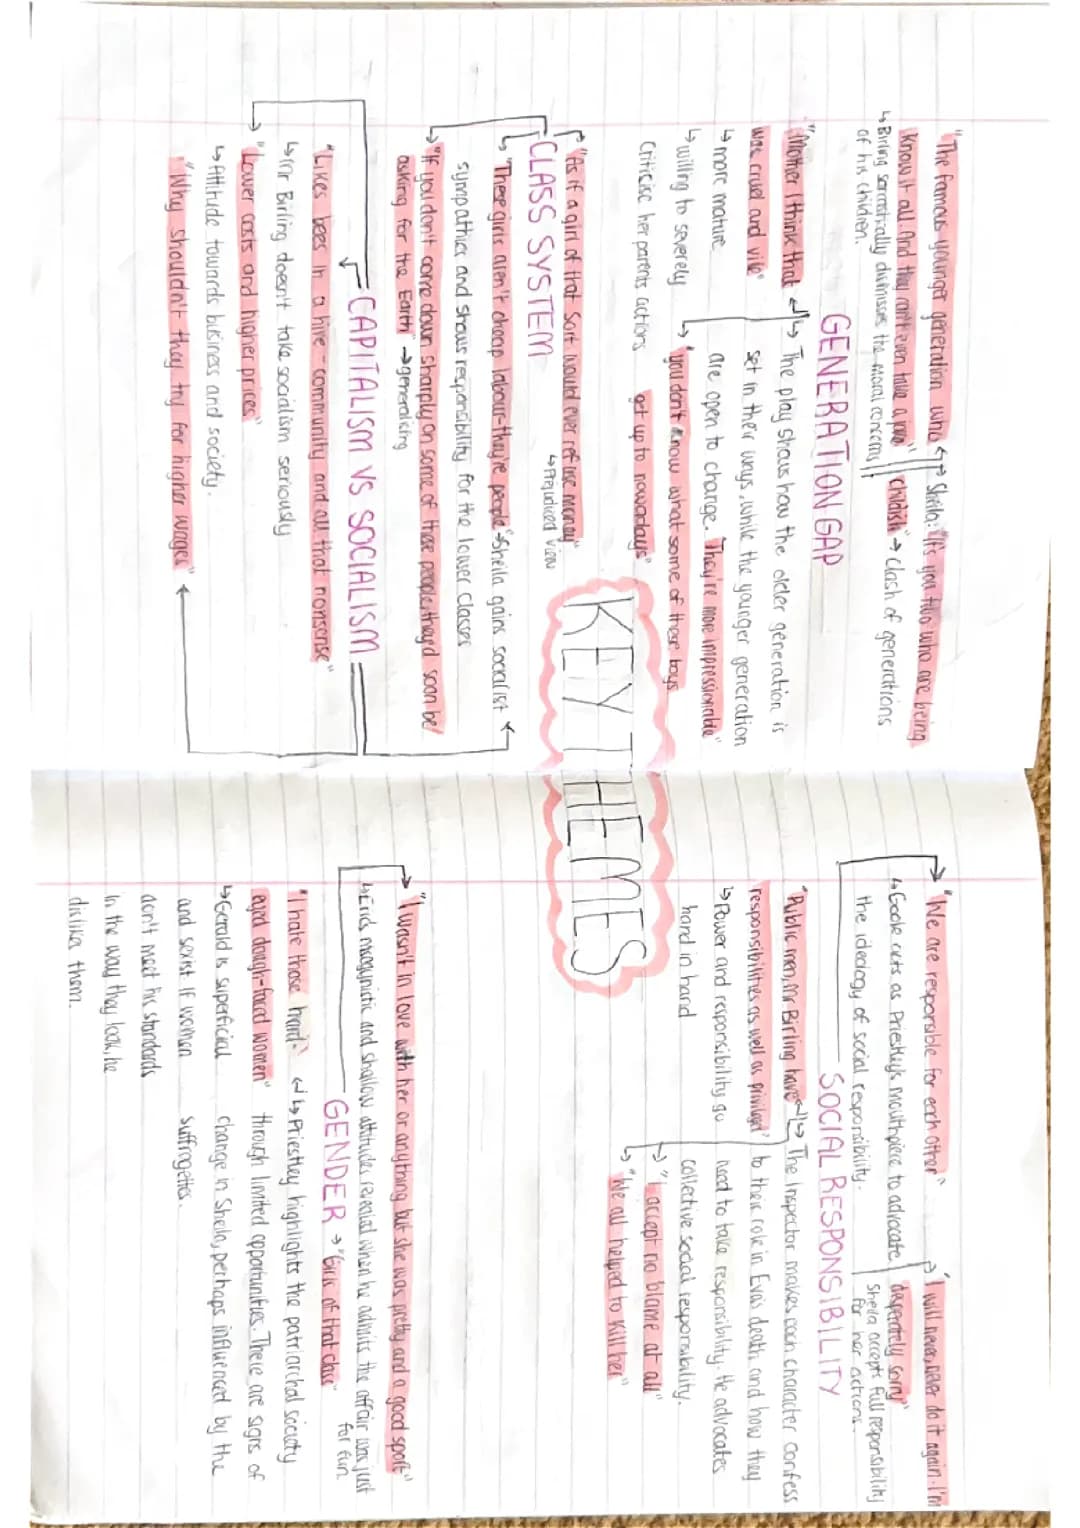 KEY THEMES
"The famous younger generation who
know it all. And they can't even take a joke"
↳ Birling sarcastically dismisses the moral concerns
of his children.
Sheila: "It's you two who are being
childish" → clash of generations
GENERATION GAP
"Mother I think that
was cruel and vile"
↳ more mature
↳ willing to severely
criticise her parents actions
↳ The play shows how the older generation is
set in their ways, while the younger generation
are open to change. They're more impressionable"
↳ "you don't know what some of these boys
get up to nowadays"
"As if a girl of that sort would ever refuse money"
↳ Prejudiced view
CLASS SYSTEM
↳ "These girls aren't cheap labour-they're people" Sheila gains socialist
sympathies and shows responsibility for the lower classes
"If you don't come down sharply on some of these people, they'd soon be
asking for the Earth" → generalising
CAPITALISM VS SOCIALISM
"Likes bees in a hive - community and all that nonsense"
↳ Mr Birling doesn't take socialism seriously
"Lower costs and higher prices"
↳ Attitude towards business and society.
"Why shouldn't they try for higher wages"
"We are responsible for each other"
↳ Goole acts as Priestley's mouthpiece to advocate
the ideology of social responsibility.
"I will never, never do it again. I'm
desperately sorry"
Sheila accepts full responsibility
for her actions.
SOCIAL RESPONSIBILITY
"Public men, Mr Birling have
responsibilities as well as privileges"
↳ Power and responsibility go
hand in hand
↳ The Inspector makes each character confess
to their role in Eva's death and how they
need to take responsibility. He advocates
collective social responsibility.
↳ "I accept no blame at all"
↳ "We all helped to kill her"
"I wasn't in love with her or anything but she was pretty and a good sport"
↳ Erics misogynistic and shallow attitudes revealed when he admits the affair was just
for fun
GENDER → "Girls of that class"
"I hate those hard-
eyed dough-faced women"
↳ Gerald is superficial
and sexist if women
don't meet his standards
in the way they look, he
dislikes them.
↳ Priestley highlights the patriarchal society
through limited opportunities. There are signs of
change in Sheila, perhaps influenced by the
suffragettes.